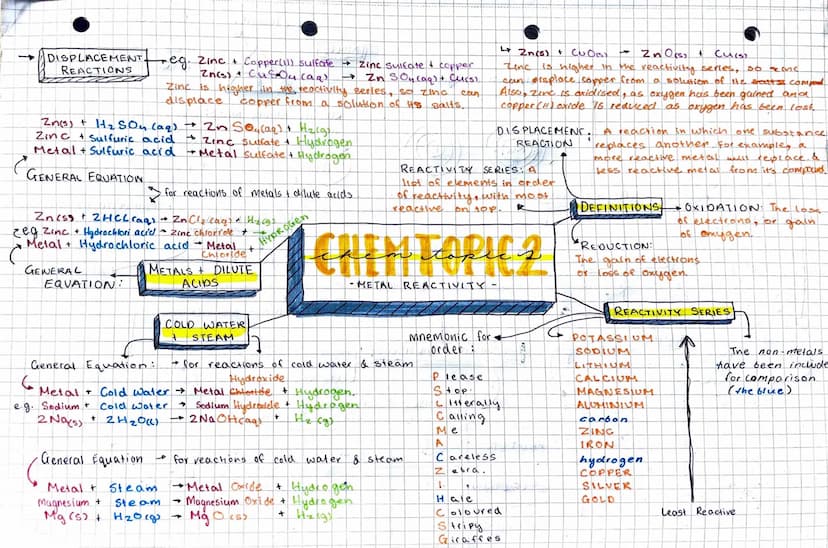 DISPLACEMENT
REACTIONS
eg. Zinc + Copper(II) sulfate → Zinc sulfate + copper
Zn(s) + CuSO4 (aq) → Zn SO4(aq) + Cu(s)
Zinc is higher in the reactivity series, so zinc can
displace copper from a solution of its salts.
↳ Zn(s) + CuO(s) → ZnO(s) + Cu(s)
Zinc is higher in the reactivity series, so zinc
can displace copper from a solution of its
Also, zinc is oxidised, as oxygen has been gained and
copper(II) oxide is reduced as oxygen has been lost.
Zn(s) + H2SO4 (aq) → Zn SO4(aq) + H2(g)
Zinc + Sulfuric acid → Zinc sulfate + Hydrogen
Metal + Sulfuric acid → Metal sulfate + Hydrogen
GENERAL EQUATION
for reactions of metals + dilute acids
Zn(s) + 2HCl(aq) → ZnCl2(aq) + H2(g)
eg Zinc + Hydrochlori acid → Zinc chloride + HYDROGEN
Metal + Hydrochloric acid → Metal
Chloride +
GENERAL
EQUATION:
METALS + DILUTE
ACIDS
DISPLACEMENT
REACTION
: A reaction in which one substance
replaces another. For example, a
more reactive metal will replace a
less reactive metal from its compound.
REACTIVITY SERIES: A
list of elements in order
of reactivity, with most
reactive on top.
DEFINITIONS
OXIDATION: The loss
of electrons, or gain
of oxygen.
REDUCTION:
The gain of electrons
or loss of oxygen.
CHEM TOPIC 2
chem topic 2
- METAL REACTIVITY -
COLD WATER
+ STEAM
General Equation: → for reactions of cold water & steam
Hydroxide
Metal + Cold Water → Metal Chloride + Hydrogen.
e.g. Sodium + Cold Water → Sodium Hydroxide + Hydrogen
2Na(s) + 2H2O(l) → 2NaOH(aq) + H2 (g)
General Equation → for reactions of cold water & steam
Metal + Steam → Metal Oxide + Hydrogen
Magnesium + Steam → Magnesium Oxide + Hydrogen
Mg(s) + H2O(g) → MgO (s) + H2(g)
mnemonic for
order:
Please
Stop
Literally
Calling
Me
A
Careless
Zebra.
I
Hate
Coloured
Stripy
Giraffes
REACTIVITY SERIES
POTASSIUM
SODIUM
LITHIUM
CALCIUM
MAGNESIUM
ALUMINIUM
carbon
ZINC
IRON
hydrogen
COPPER
SILVER
GOLD
Least Reactive
The non-metals
have been include
for comparison
(the blue)